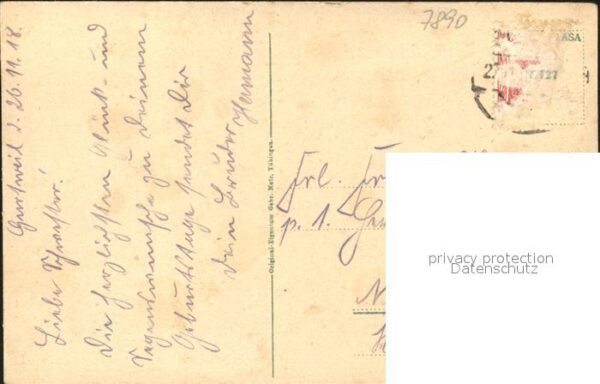 Gurtweil d. 20.11.18.
Liebe Schwester!
Die herzlichsten Glück- und
Segenswünsche zu Deinem
Geburtstage sendet Dir
Dein Bruder Hermann
Original-Eigentum Gebr. Metz, Tübingen.
7890
Frl.
p. 1.
privacy protection
Datenschutz